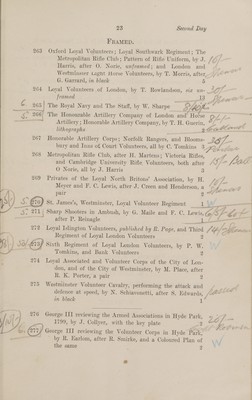 23
Second Day
FRAMED.
263 Oxford Loyal Volunteers; Loyal Southwark Regiment; The
Metropolitan Rifle Club; Pattern of Rifle Uniform, by J.
Harris, after O. Norie, unframed; and London and
Westminster Light Horse Volunteers, by T. Morris, after
G. Garrard, in black 5
264 Loyal Volunteers of London, by T. Rowlandson, six on
framed 12
265 The Royal Navy and The Staff, by W. Sharpe
266 The Honourable Artillery Company of London and Horse
Artillery; Honourable Artillery Company, by T. H. Guerrin,
lithographs
267 Honourable Artillery Corps; Norfolk Rangers, and Blooms-
bury and Inns of Court Volunteers, all by C. Tomkins
268 Metropolitan Rifle Club, after H. Martens; Victoria Rifles,
and Cambridge University Rifle Volunteers, both after
O. Norie, all by J. Harris
269 Privates of the Loyal North Britons' Association, by H.
Meyer and F. C. Lewis, after J. Green and Henderson, a
pair 2
270 St. James's, Westminster, Loyal Volunteer Regiment
W
271 Sharp Shooters in Ambush, by G. Maile and F. C. Lewis,
after P. Reinagle
272 Loyal Islington Volunteers, published by E. Page, and Third
Regiment of Loyal London Volunteers 2
273 Sixth Regiment of Loyal London Volunteers, by P. W.
Tomkins, and Bank Volunteers 2
W
274 Loyal Associated and Volunteer Corps of the City of Lon-
don, and of the City of Westminster, by M. Place, after
R. K. Porter, a pair 2
275 Westminster Volunteer Cavalry, performing the attack and
defence at speed, by N. Schiavonetti, after S. Edwards,
in black 1
passed
276 George III reviewing the Armed Associations in Hyde Park,
1799, by J. Collyer, with the key plate 2
277 George III reviewing the Volunteer Corps in Hyde Park,
by R. Earlom, after R. Smirke, and a Coloured Plan of
the same 2
W